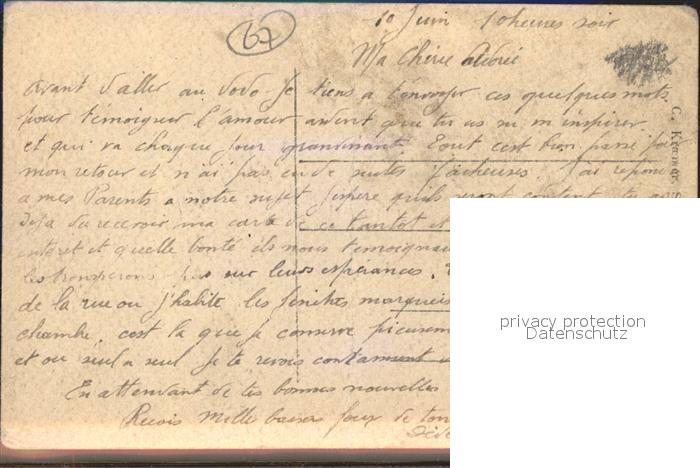 67
10 Juin 10 heures soir
Ma chérie adorée
avant d'aller au dodo je tiens a t'envoyer ces quelques mots
pour témoigner l'amour ardent que tu as su m'inspirer
et qui va chaque jour grandissant. Tout c'est bien passé
mon retour et n'ai pas eu de suites fâcheuses. J'ai
a mes Parents a notre sujet j'espère qu'ils seront content
déjà du recevoir ma carte de ce tantot et
interet et quelle bonté ils nous
pas sur leurs espérances.
de la rue ou j'habite les fenêtres marqueés
chambre. cest la que je conserve
et ou seul a seul je te revois
En attendant de tes bonnes nouvelles
Recois Mille baisers foux de ton
C. Krämer
privacy protection
Datenschutz